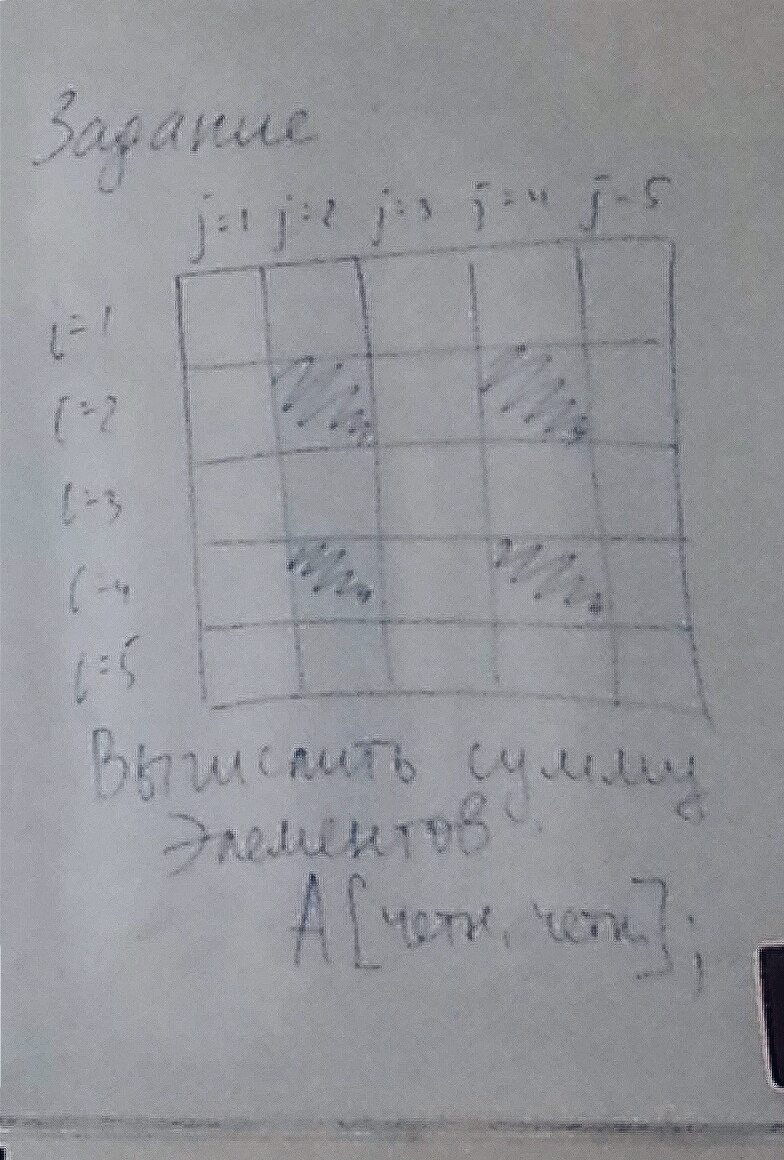 Задание
j=1 j=2 j=3 j=4 j-5
i=1
i=2
i=3
i-4
i=5
Вычислить сумму
элементов
A[четн, четн.];